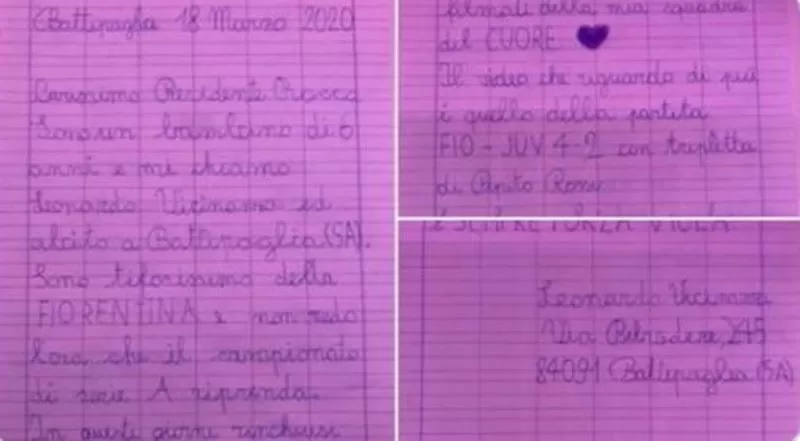 Battipaglia 18 Marzo 2020
Carissimo Presidente
Sono un bambino di 6
anni e mi chiamo
Leonardo ed
abito a Battipaglia (SA).
Sono tifosissimo della
FIORENTINA e non vedo
l'ora che il campionato
di serie A riprenda.
In questi giorni
filmati della mia squadra
del CUORE
Il video che riguardo di più
è quello della partita
FIO-JUV 4-2 con tripletta
di Pepito Rossi
E SEMPRE FORZA VIOLA
Leonardo
Via Belvedere, 245
84091 Battipaglia (SA)